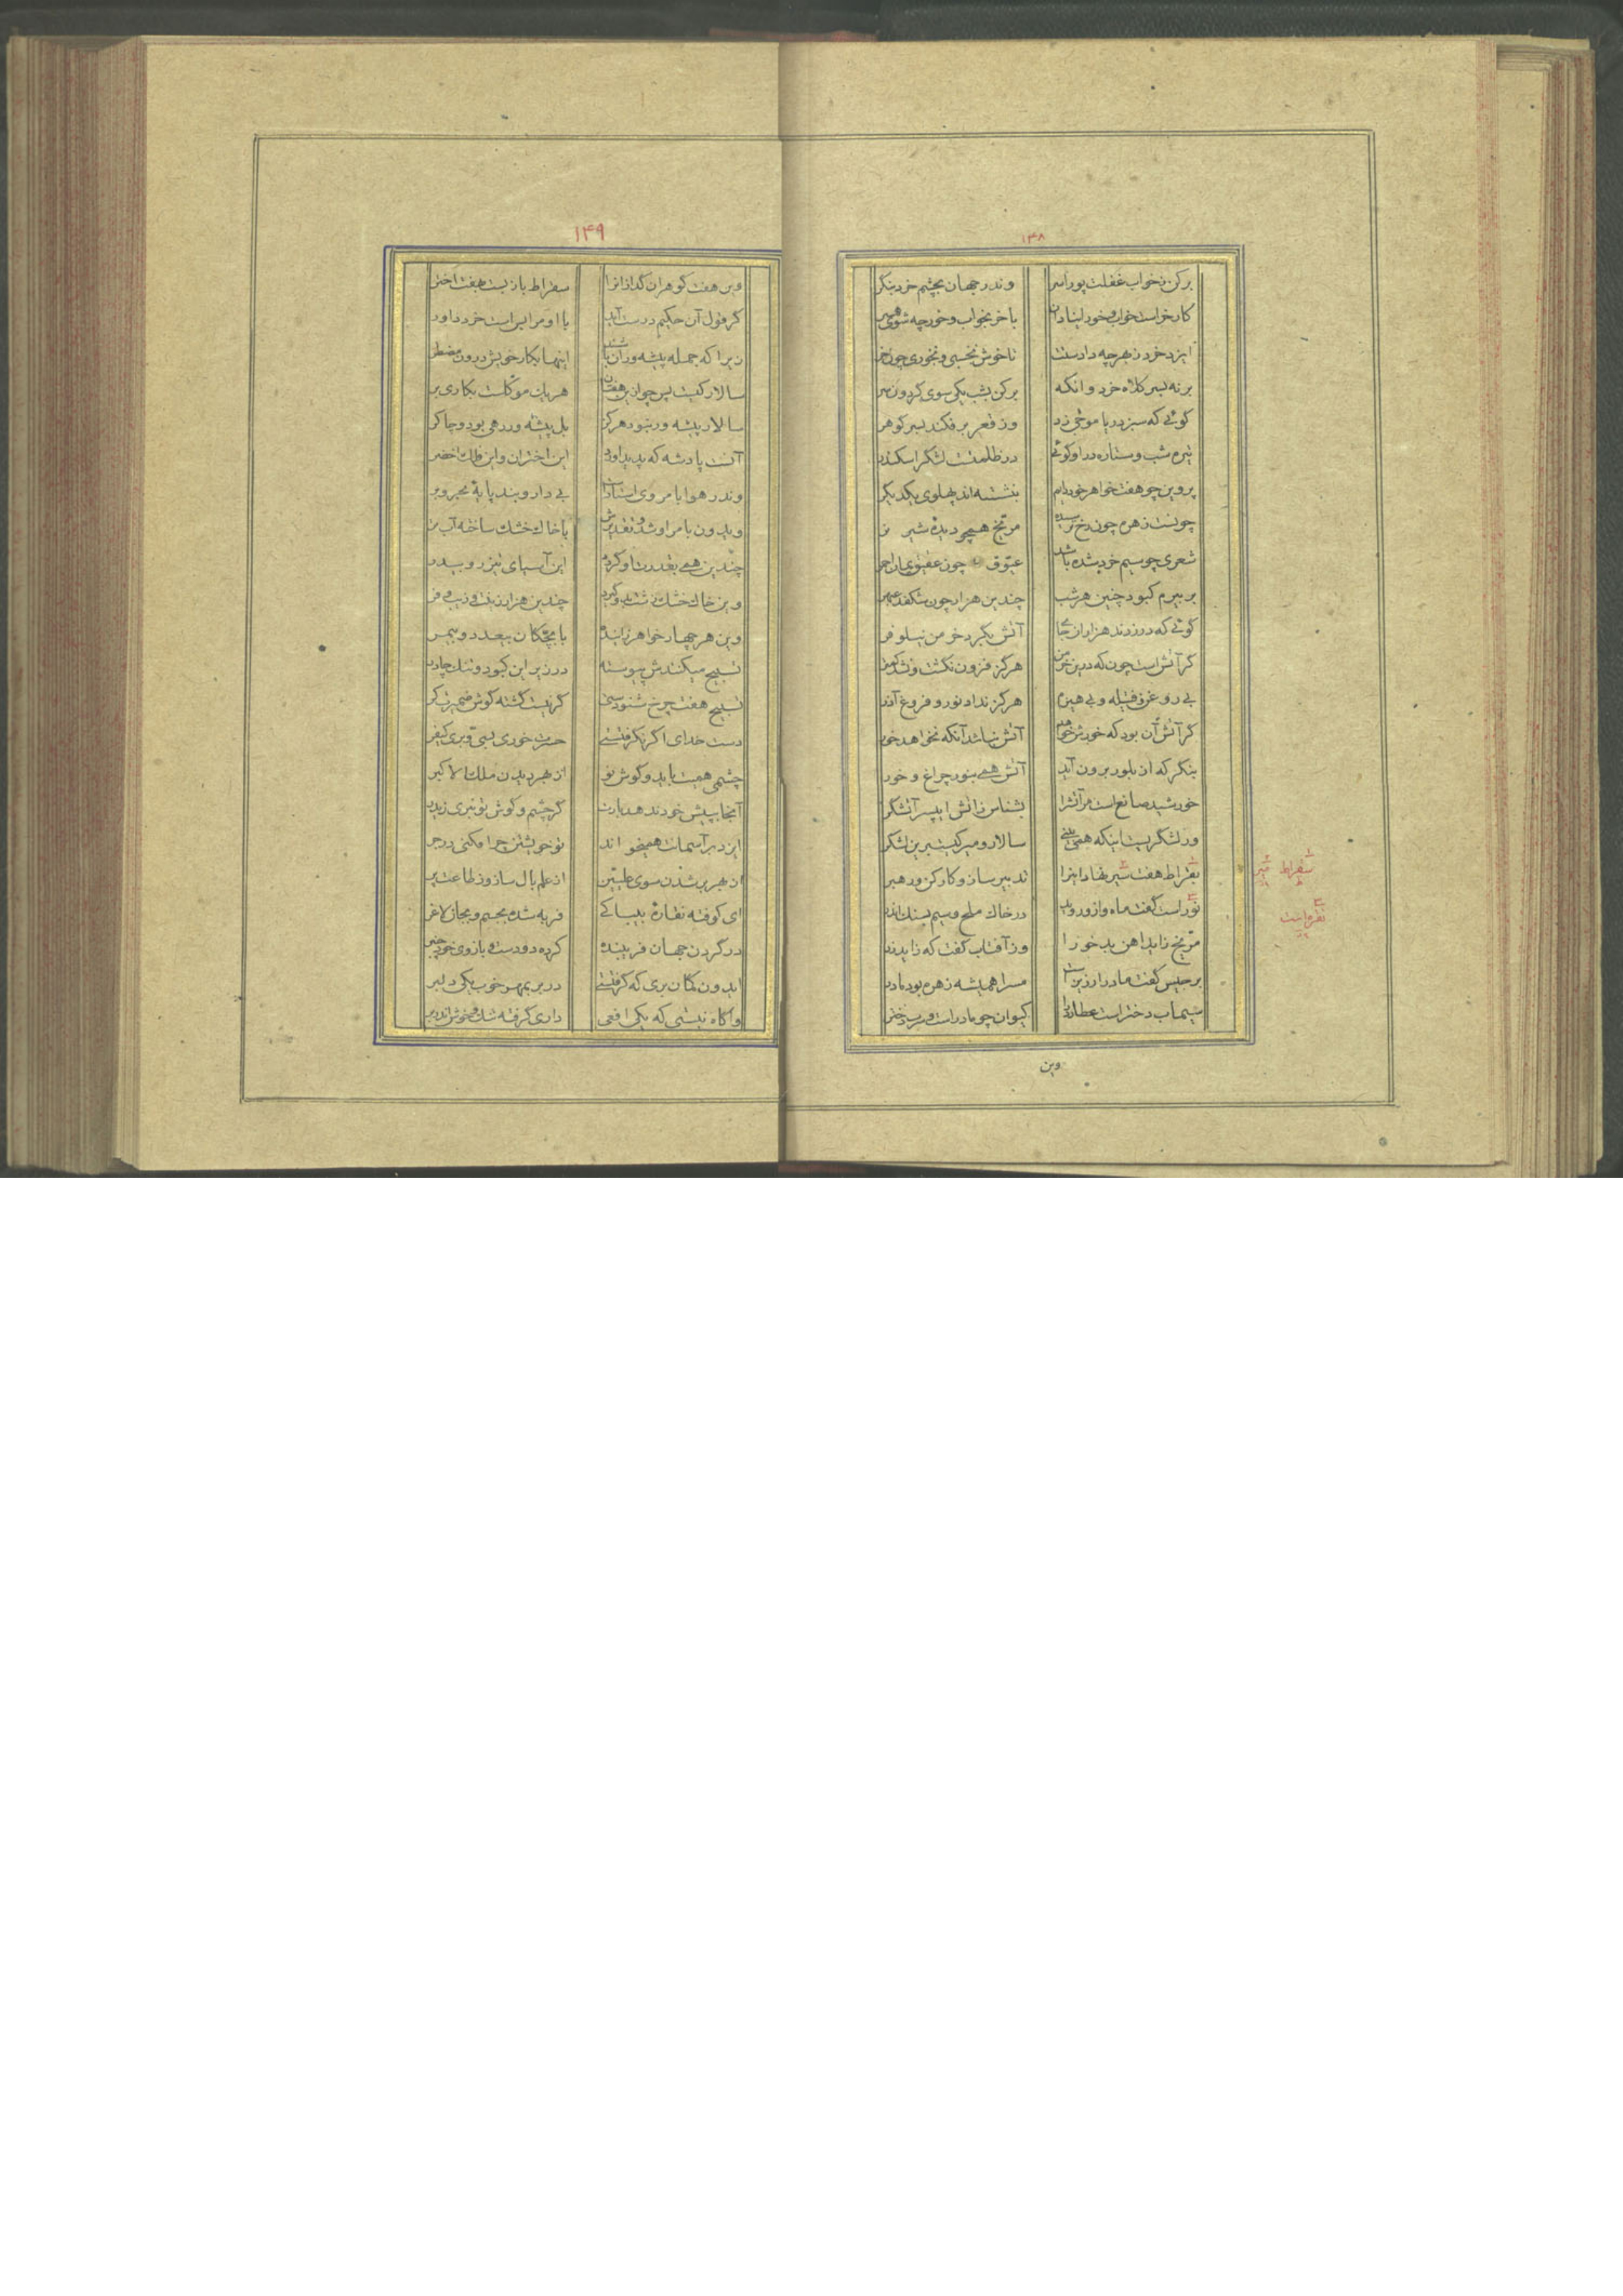 ۱۴۸
برکن زخواب غفلت پوراسر وندر جهان بچشم خرد بنگر
کار خر است خواب و خور ای نادان با خر بخواب و خور چه شوی همبر
ایزد خرد ز بهر چه دادستت تا خوش بخسبی و بخوری چون خر
بر نه بسر کلاه خرد وانگه برکن بشب یکی سوی گردون سر
گوئی که سبز دریا موجی زد وز قعر برفکند بسر گوهر
تیره شب و ستاره در او گوئی در ظلمتست لشکر اسکندر
پروین چو هفت خواهر خود دایم بنشسته اند پهلوی یکدیگر
چونست زهره چون رخ ترسیده مریخ همچو دیدهٔ شیر نر
شعری چو سیم خرد شده باشد عیّوق چون عقیق چنان احمر
بر بیرم کبود چنین هر شب چندین هزار چون شکفد عبهر
گوئی که در زدند هزاران جا آتش بگرد خرمن نیلوفر
گر آتش است چون که درین خرمن هرگز فزون نگشت و نشد کمتر
بی روغن و فتیله و بی هیزم هرگز نداد نور و فروغ آذر
گر آتش آن بود که خورش خواهد آتش نباشد آنکه نخواهد خور
بنگر که از بلور برون آید آتش همی بنور چراغ و خور
خورشید صانع است مر آتش را بشناس ز آتش ای پسر آتشگر
ور لشگریست اینکه همی بینی سالار و میر کیست برین لشکر
بقراط هفت میر نهاد اینرا تدبیر ساز و کارکن و رهبر
نور است گفت ماه و ازو روید در خاک ملح و سیم بسنگ اندر
مریخ زاید آهن بد خو را وز آفتاب گفت که زاید زر
برجیس گفت مادر ارزیز است مس را همیشه زهره بود مادر
سیماب دختر است عطارد را کیوان چو مادر است و سرب دختر
سقراط
میر
نقره است
وین
۱۴۹
وین هفت گوهران گدازانرا سقراط باز بست بهفت اختر
گر قول آن حکیم درست آید با او مرا بس است خرد داور
زیرا که جمله پیشه‌وران باشند اینها بکار خویش درون مضطر
سالار کیست پس چو ازین هفتان هر یک موکلست بکاری بر
سالار پیشه‌ور نبود هرگز بل پیشه‌ور رهی بود و چاکر
آنست پادشه که پدید آورد این اختران و این فلک اخضر
وندر هوا بامر وی استاده است بی دار و بند پایهٔ بحر و بر
وایدون بامر او شد و تقدیرش با خاک خشک ساخته آب تر
چندین همی بقدرت او گردد این آسیای تیزرو بی‌در
وین خاک خشک زشت بدو گیرد چندین هزار زینت و زیب و فر
وین هر چهار خواهر زاینده با بچگان بی‌عدد و بی‌مر
تسبیح میکنندش پیوسته در زیر این کبود و تنک چادر
تسبیح هفت چرخ شنودستی گر نیست گشته گوش ضمیرت کر
دست خدای اگر نگرفتستی حسرت خوری بسی و بری کیفر
چشمی همت بباید و گوش نو از بهر دیدن ملک الاکبر
آنجا بپیش خود ندهد بارت گر چشم و گوش تو نبری زیدر
ایزد بر آسمانت همیخواند تو خویشتن چرا فکنی در جر
از بهر بر شدن سوی علیّین از علم بال ساز و ز طاعت پر
ای کوفته نقارهٔ بیباکی فربه شده بجسم و بجان لاغر
در گردن جهان فریبنده کرده دو دست و بازوی خود چنبر
ایدون گمان بری که گرفتستی در بر بمهر خوب یکی دلبر
وآگاه نیستی که یکی افعی داری گرفته تنگ و خوش اندر بر